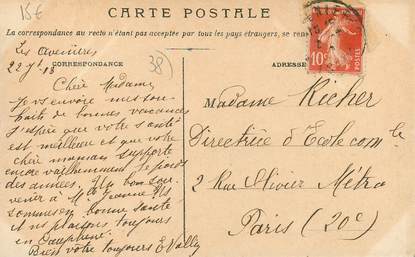 15€
CARTE POSTALE
La correspondance au recto n'étant pas acceptée par tous les pays étrangers, se ren
CORRESPONDANCE
ADRESSE
38
10c
POSTES
Les Avenières
Chère Madame,
Je vs envoie mes sou-
haits de bonnes vacances
J'espère que votre santé
est meilleure et que votre
chère maman supporte
encore vaillamment le poids
des années. Un bon sou-
venir à Mlle Jeanne. Ns
sommes en bonne santé
et ns plaisons toujours
en Dauphiné.
Bien votre toujours E Vally
Madame Richer
Directrice d'Ecole comle
2 rue Olivier Métra
Paris (20e)